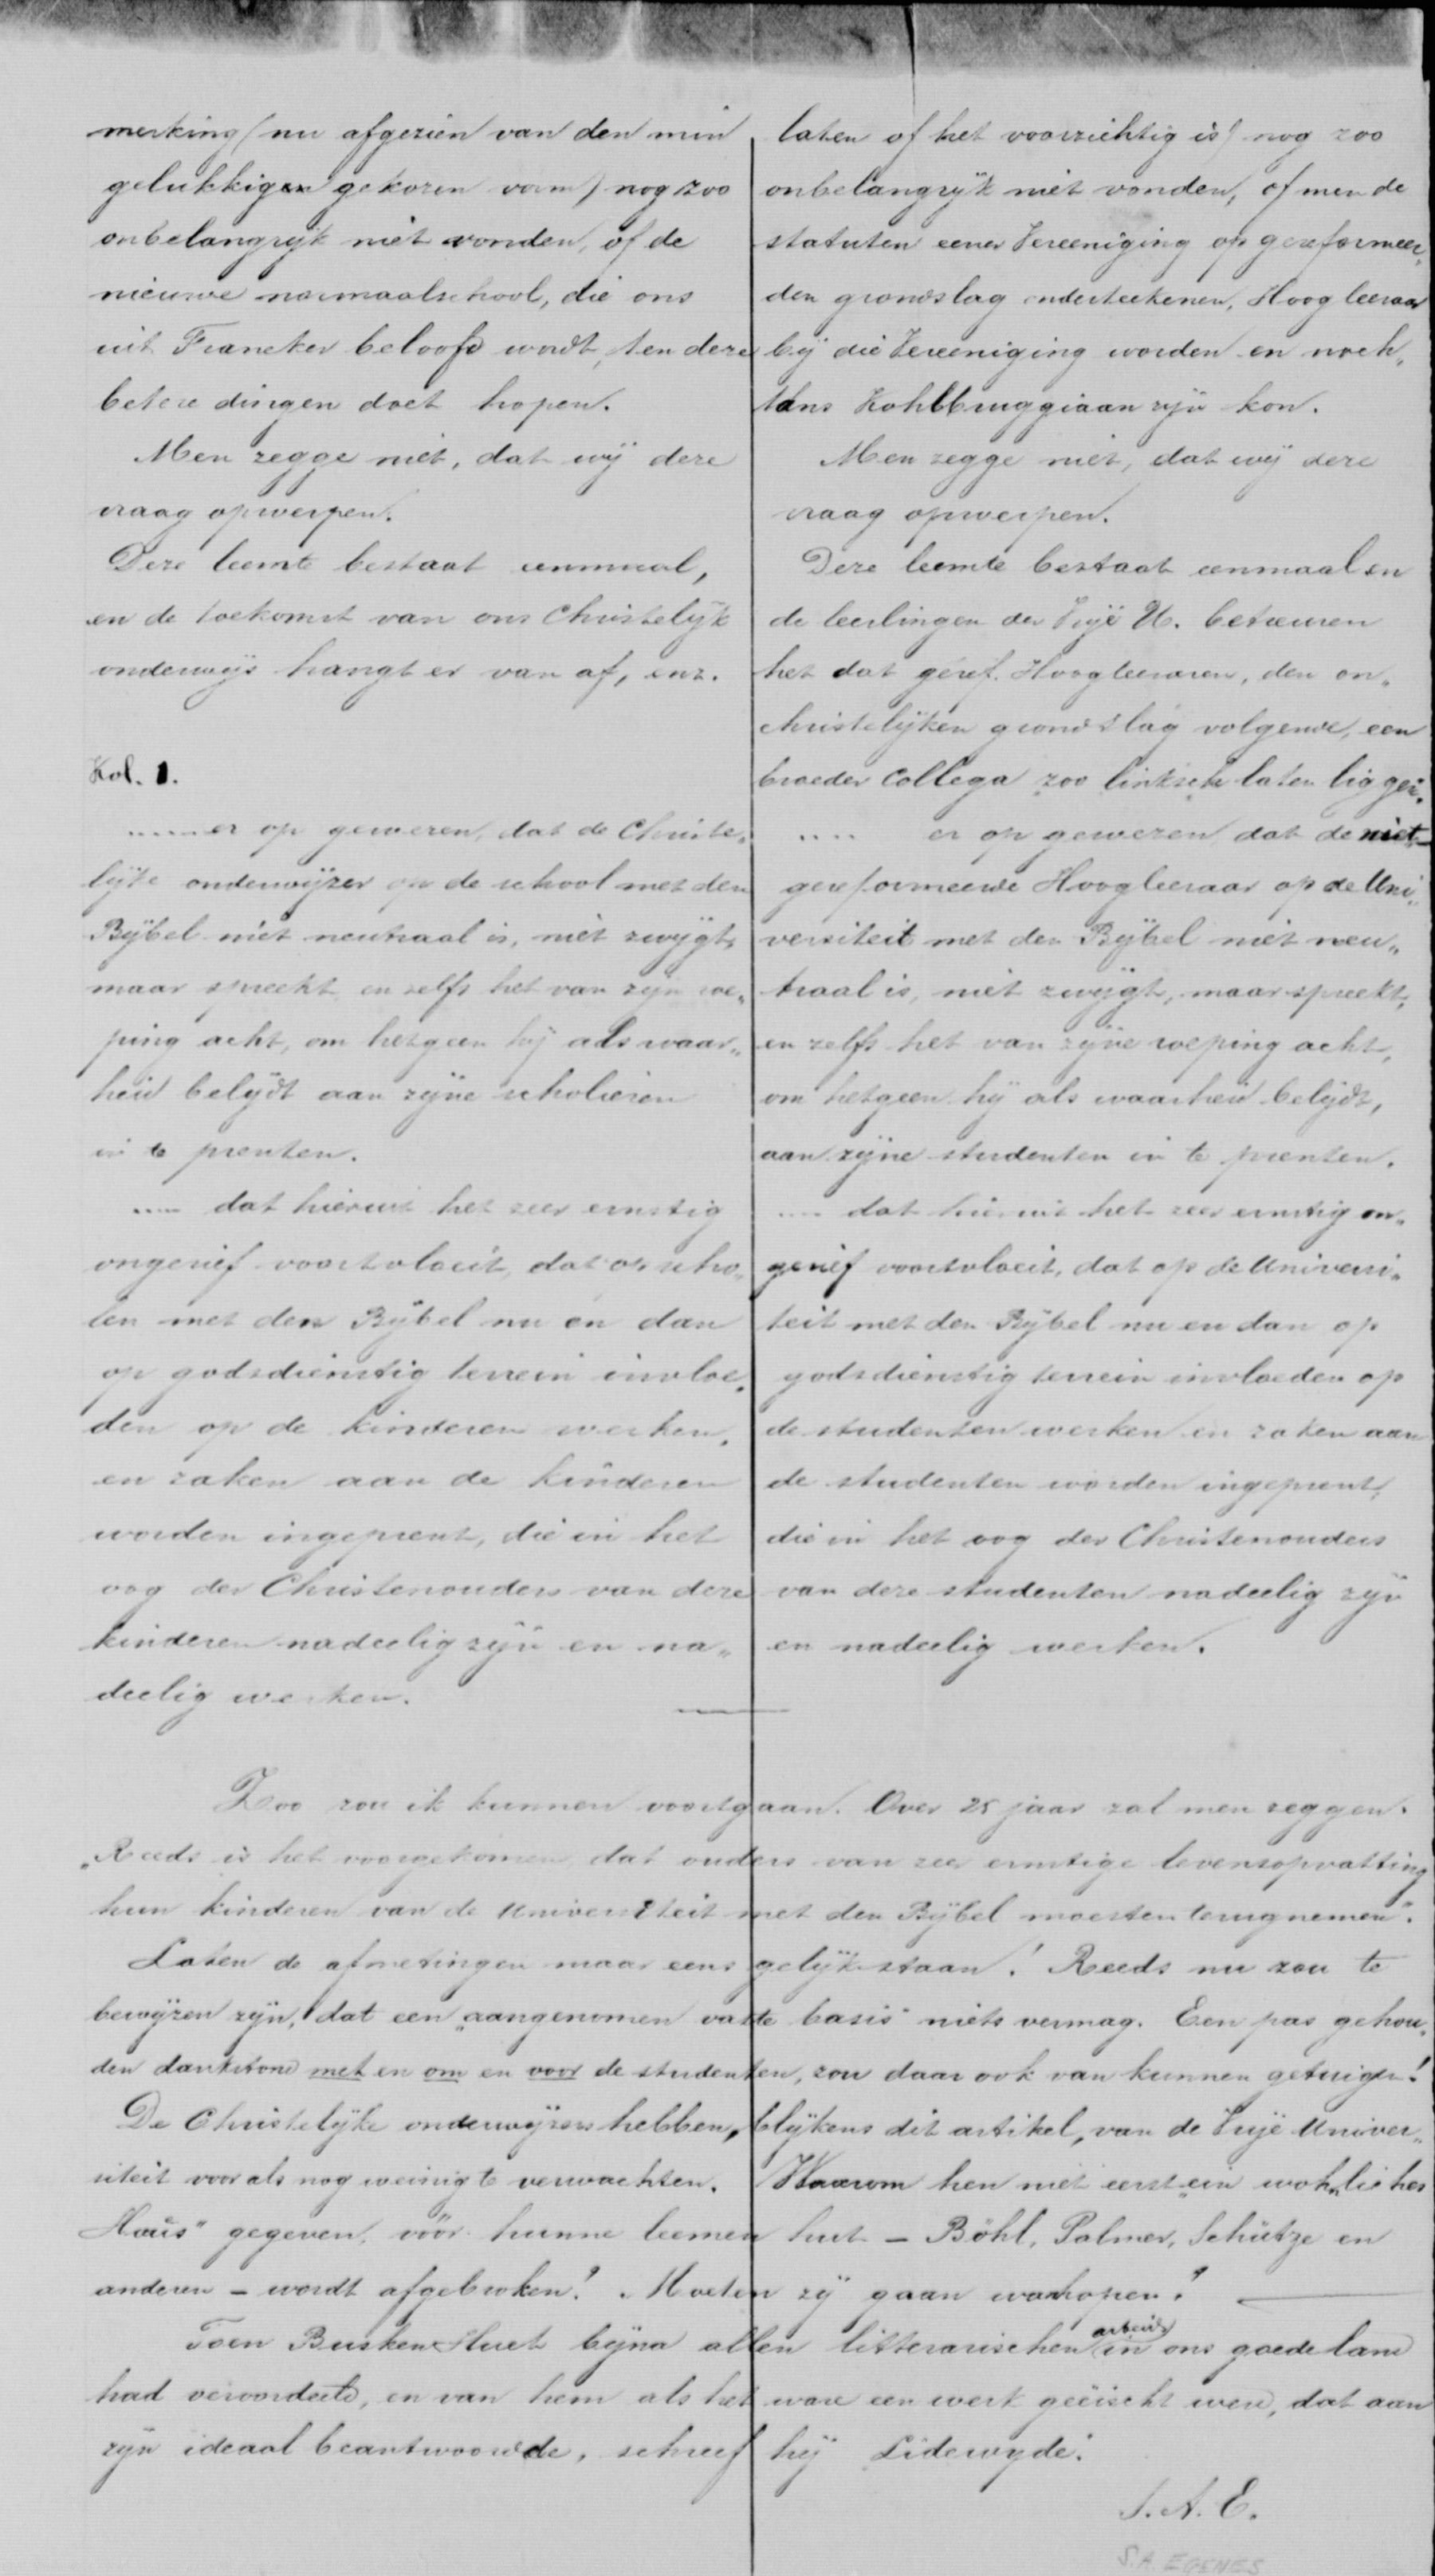 merking (nu afgezien van den min
gelukkigen gekozen vorm) nog zoo
onbelangrijk niet vonden, of de
nieuwe normaalschool, die ons
uit Franeker beloofd wordt, ten deze
betere dingen doet hopen.
Men zegge niet, dat wij deze
vraag opwerpen.
Deze leemte bestaat eenmaal,
en de toekomst van ons Christelijk
onderwijs hangt er van af, enz.
Kol. 1.
..... er op gewezen, dat de Christe„
lijke onderwijzer op de school met den
Bijbel niet neutraal is, niet zwijgt,
maar spreekt en zelfs het van zijn roe„
ping acht, om hetgeen hij als waar„
heid belijdt aan zijne scholieren
in te prenten.
.... dat hieruit het zeer ernstig
ongerief voortvloeit, dat op scho„
len met den Bijbel nu en dan
op godsdienstig terrein invloe„
den op de kinderen werken,
en zaken aan de kinderen
worden ingeprent, die in het
oog der Christenouders van deze
kinderen nadeelig zijn en na„
deelig werken.
laten of het voorzichtig is) nog zoo
onbelangrijk niet vonden, of men de
statuten eener Vereeniging op gereformeer„
den grondslag onderteekenen, Hoogleeraar
bij die Vereeniging worden en noch„
tans Kohlbruggiaan zijn kon.
Men zegge niet, dat wij deze
vraag opwerpen.
Deze leemte bestaat eenmaal en
de leerlingen der Vrije U. betreuren
het dat geref. Hoogleeraren, den on„
christelijken grondslag volgende, een
broeder Collega zoo linksch laten liggen.
.... er op gewezen dat de niet-
gereformeerde Hoogleeraar op de Uni„
versiteit met den Bijbel niet neu„
traal is, niet zwijgt, maar spreekt,
en zelfs het van zijne roeping acht,
om hetgeen hij als waarheid belijdt,
aan zijne studenten in te prenten.
.... dat hieruit het zeer ernstig on„
gerief voortvloeit, dat op de Universi„
teit met den Bijbel nu en dan op
godsdienstig terrein invloeden op
de studenten werken en zaken aan
de studenten worden ingeprent,
die in het oog der Christenouders
van deze studenten nadeelig zijn
en nadeelig werken.
Zoo zou ik kunnen voortgaan. Over 25 jaar zal men zeggen.
„Reeds is het voorgekomen dat ouders van zeer ernstige levensopvatting
hun kinderen van de Universiteit met den Bijbel moesten terugnemen".
Laten de afmetingen maar eens gelijk staan! Reeds nu zou te
bewijzen zijn, dat een „aangenomen vaste basis" niets vermag. Een pas gehou„
den dankstond met en om en voor de studenten, zou daar ook van kunnen getuigen!
De Christelijke onderwijzers hebben, blijkens dit artikel, van de Vrije Univer„
siteit voor als nog weinig te verwachten. Waarom hen niet eerst „ein wohnliches
Haus" gegeven, vóór hunne leemen hut — Böhl, Palmer, Schütze en
anderen — wordt afgebroken? Moeten zij gaan wanhopen?
Toen Busken Huet bijna allen litterarischen arbeid in ons goede land
had veroordeeld, en van hem als het ware een werk geëischt werd, dat aan
zijn ideaal beantwoordde, schreef hij Lidewyde.
S. A. E.
S.A. EGENES